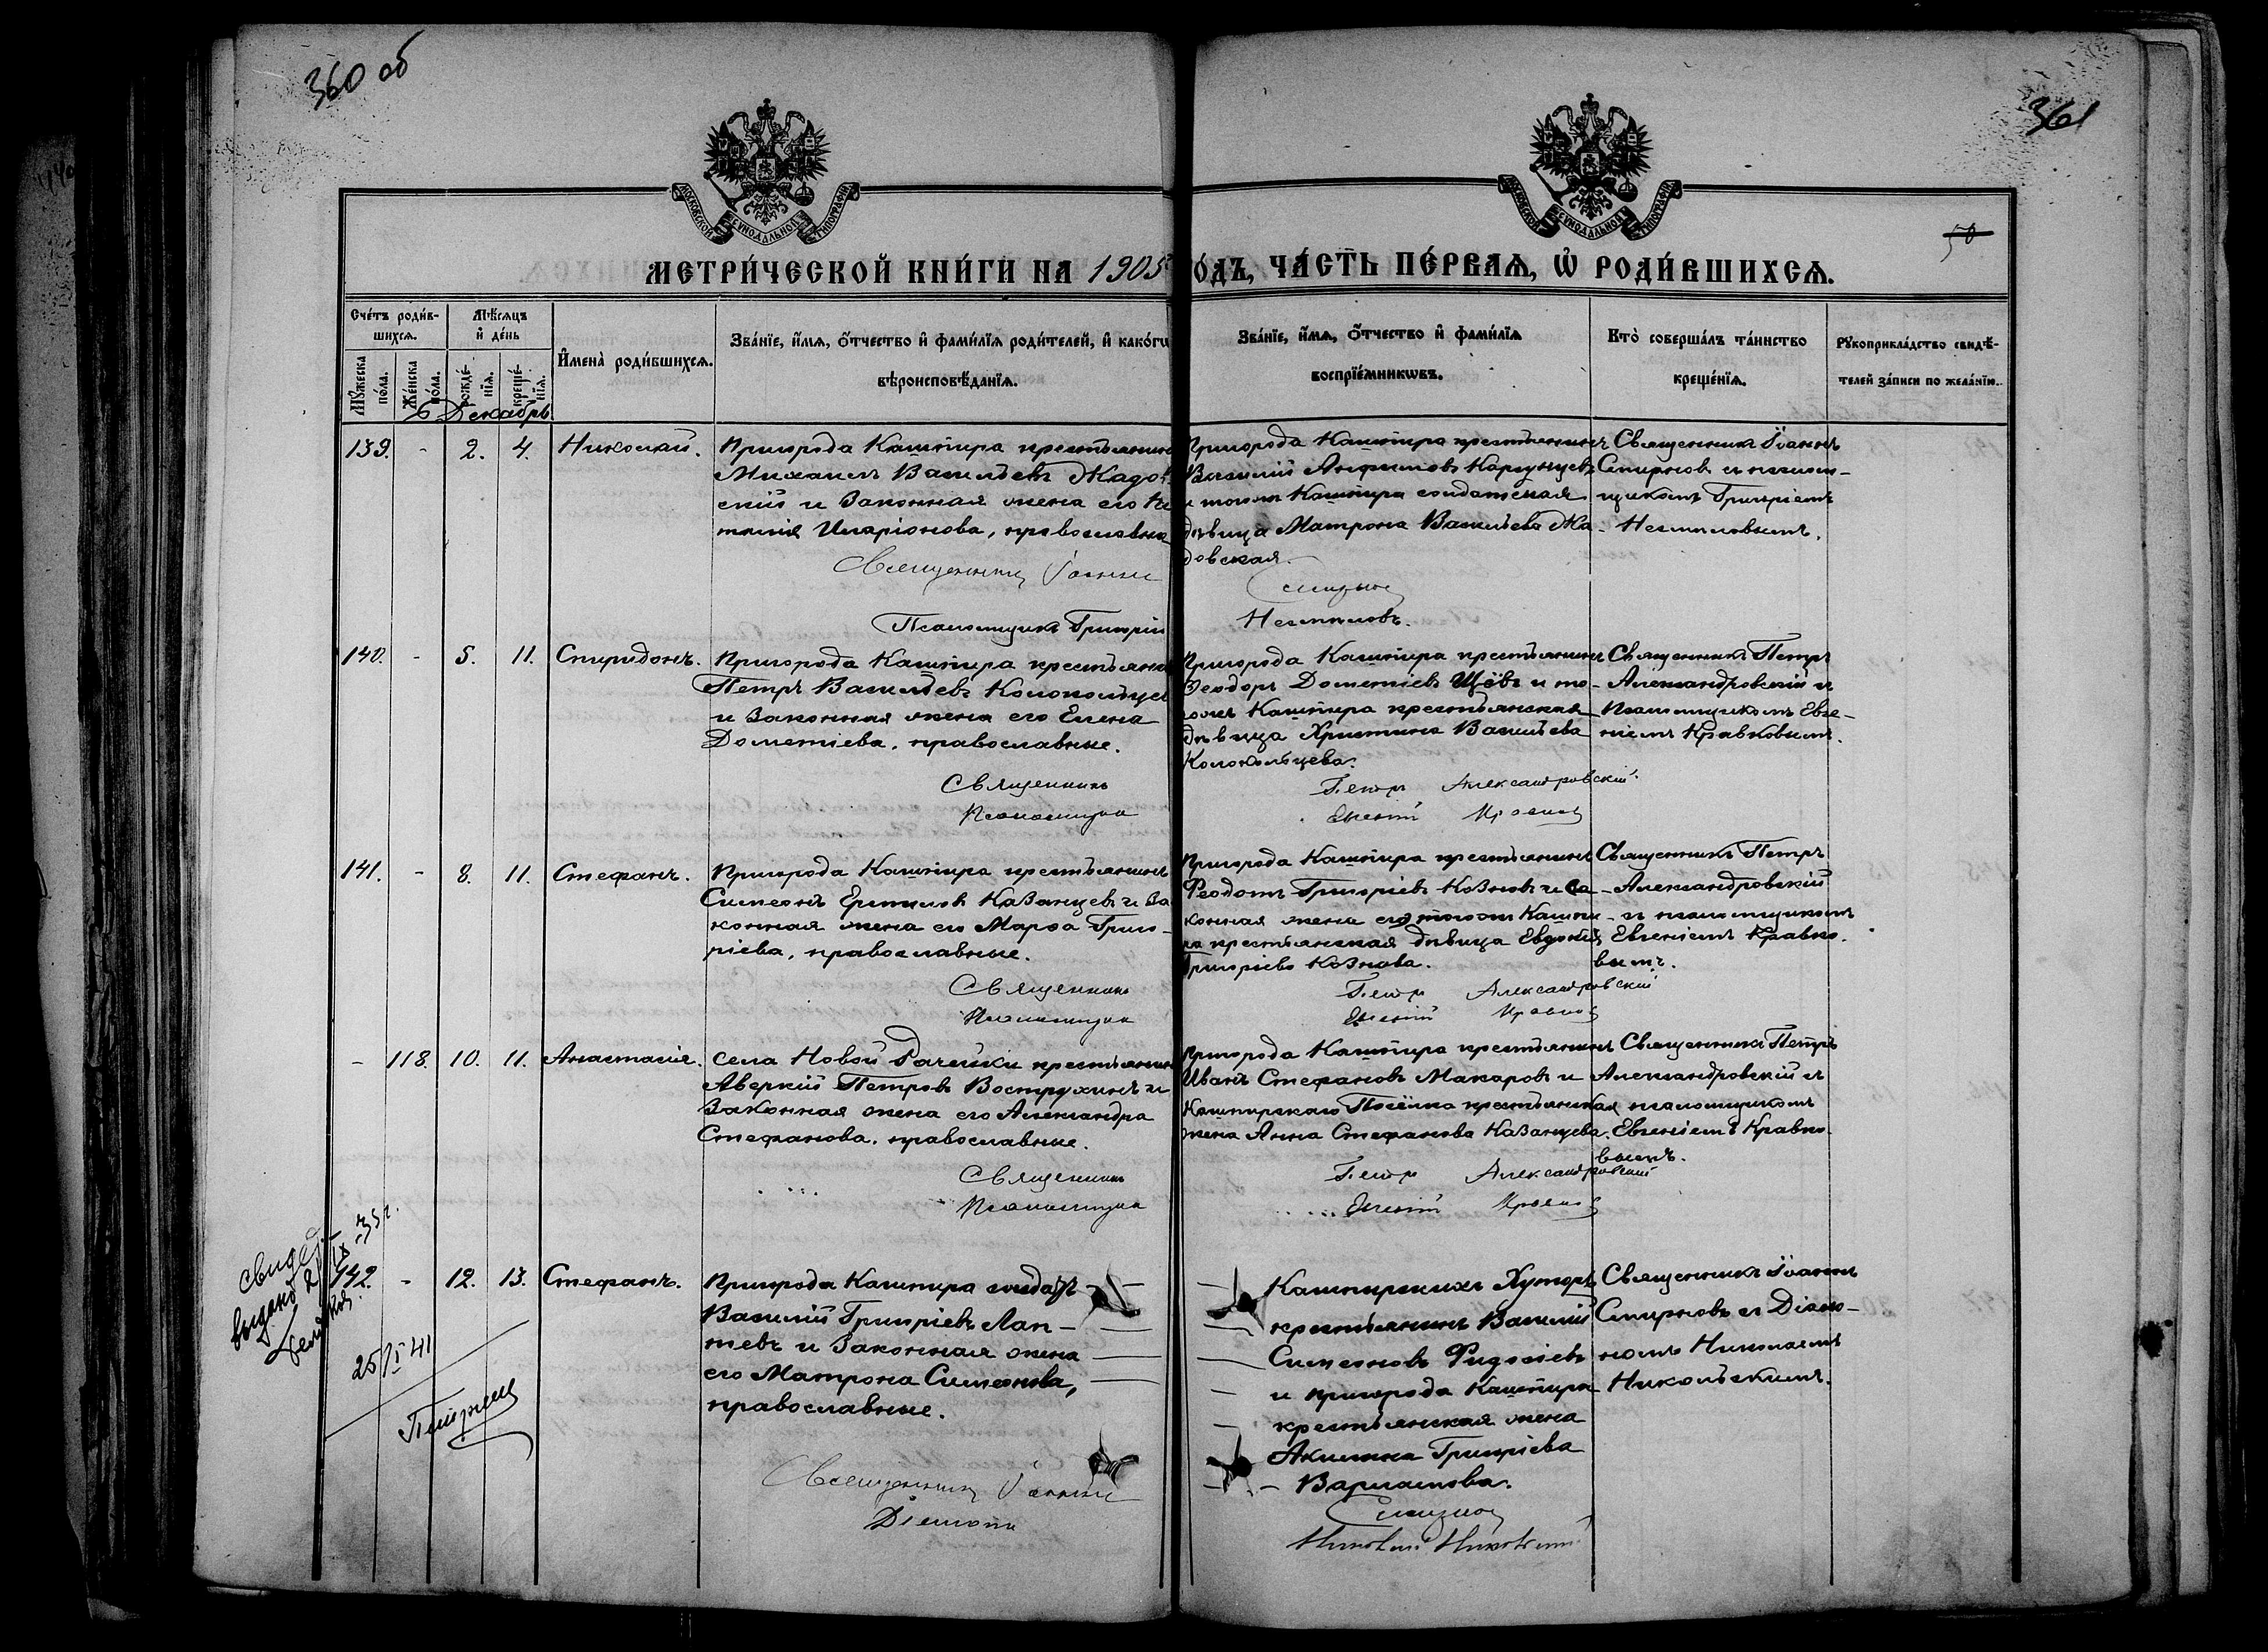 360 об
361
50
МОСКОВСКОЙ СѴНОДАЛЬНОЙ ТИПОГРАФІИ
МОСКОВСКОЙ СѴНОДАЛЬНОЙ ТИПОГРАФІИ
МЕТРИ́ЧЕСКОЙ КНИ́ГИ НА 1905
О́ДЪ, ЧА́СТЬ ПЕ́РВАѦ, Ѡ҆ РОДИ́ВШИХСѦ.
Сче́тъ роди́в-
шихсѧ.
Мꙋ́жеска по́ла.
Же́нска по́ла.
Мѣ́сѧцъ
и҆ де́нь
рожде́-нїѧ.
креще́-нїѧ.
И҆мена̀ роди́вшихсѧ.
Зва́нїе, и҆́мѧ, ѻ҆́тчество и҆ фами́лїѧ роди́телей, и҆ како́гѡ
вѣроисповѣ́данїѧ.
Зва́нїе, и҆́мѧ, ѻ҆́тчество и҆ фами́лїѧ
воспрїе́мникѡвъ.
Кто̀ соверша́лъ та́инство
креще́нїѧ.
Рꙋкоприкла́дство свидѣ́-
телей за́писи по жела́нїю.
Декабрь
139. - 2. 4. Николай.
Пригорода Кашпира крестьянинъ
Михаилъ Васильевъ Жадов
скій и законная жена его
Иларіонова, православны
Священникъ Іоаннъ
Псаломщикъ Григорій
Пригорода Кашпира крестьянинъ
Василій Анфимовъ Каргунцевъ
и тогоже Кашпира солдатская
дѣвица Матрона Васильева Жа-
довская.
Смирновъ
Несмѣловъ.
Священникъ Іоаннъ
Смирновъ съ псалом-
щикомъ Григоріемъ
Несмѣловымъ.
140. - 5. 11. Спиридонъ.
Пригорода Кашпира крестьянинъ
Петръ Васильевъ Колокольцев
и законная жена его Елена
Дометіева, православные.
Священникъ
Псаломщикъ
Пригорода Кашпира крестьянинъ
Ѳеодоръ Дометіевъ и то-
гоже Кашпира крестьянская
дѣвица Христина Васильева
Колокольцева.
Петръ Александровскій.
Евгеній Кравковъ
Священникъ Петръ
Александровскій съ
Псаломщикомъ Евге-
ніемъ Кравковымъ.
141. - 8. 11. Стефанъ.
Пригорода Кашпира крестьянинъ
Симеонъ Ермиловъ Казанцевъ и за
конная жена его Марѳа Григо-
ріева, православные.
Священникъ
Псаломщикъ
Пригорода Кашпира крестьянинъ
Ѳеодотъ Григоріевъ Козновъ и за-
конная жена его тогоже Кашпи-
ра крестьянская дѣвица Евдокія
Григоріева Кознова.
Петръ Александровскій
Евгеній Кравковъ
Священникъ Петръ
Александровскій
съ псаломщикомъ
Евгеніемъ Кравко-
вымъ.
- 118. 10. 11. Анастасія.
села Новой Рачейки крестьянинъ
Аверкій Петровъ Вострухинъ и
законная жена его Александра
Стефанова, православные.
Священникъ
Псаломщикъ
Пригорода Кашпира крестьянинъ
Иванъ Стефановъ Макаровъ и
Кашпирскаго Посёлка крестьянская
жена Анна Стефанова Казанцева.
Петръ Александровскій
Евгеній Кравковъ
Священникъ Петръ
Александровскій съ
псаломщикомъ
Евгеніемъ Кравко-
вымъ.
свидет.
выдано
25/I 41
142. - 12. 13. Стефанъ.
Пригорода Кашпира солдатъ
Василій Григоріевъ Лап-
тевъ и законная жена
его Матрона Симеонова,
православные.
Священникъ Іоаннъ
Діаконъ
Кашпирскихъ Хуторъ
крестьянинъ Василій
Симеоновъ
и пригорода Кашпира
крестьянская жена
Акилина Григоріева
Варламова.
Смирновъ
Николай Никольскій
Священникъ Іоаннъ
Смирновъ съ Діако-
номъ Николаемъ
Никольскимъ.